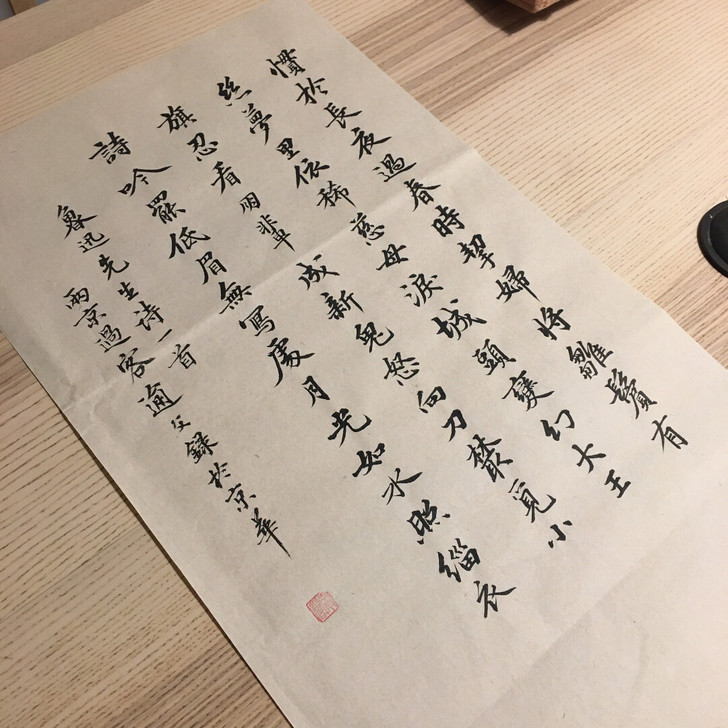 慣於長夜過春時挈婦將雛鬢有
絲夢里依稀慈母淚城頭變幻大王
旗忍看朋輩成新鬼怒向刀叢覓小
詩吟罷低眉無寫處月光如水照緇衣
魯迅先生诗一首
兩京過客逾父錄於京華